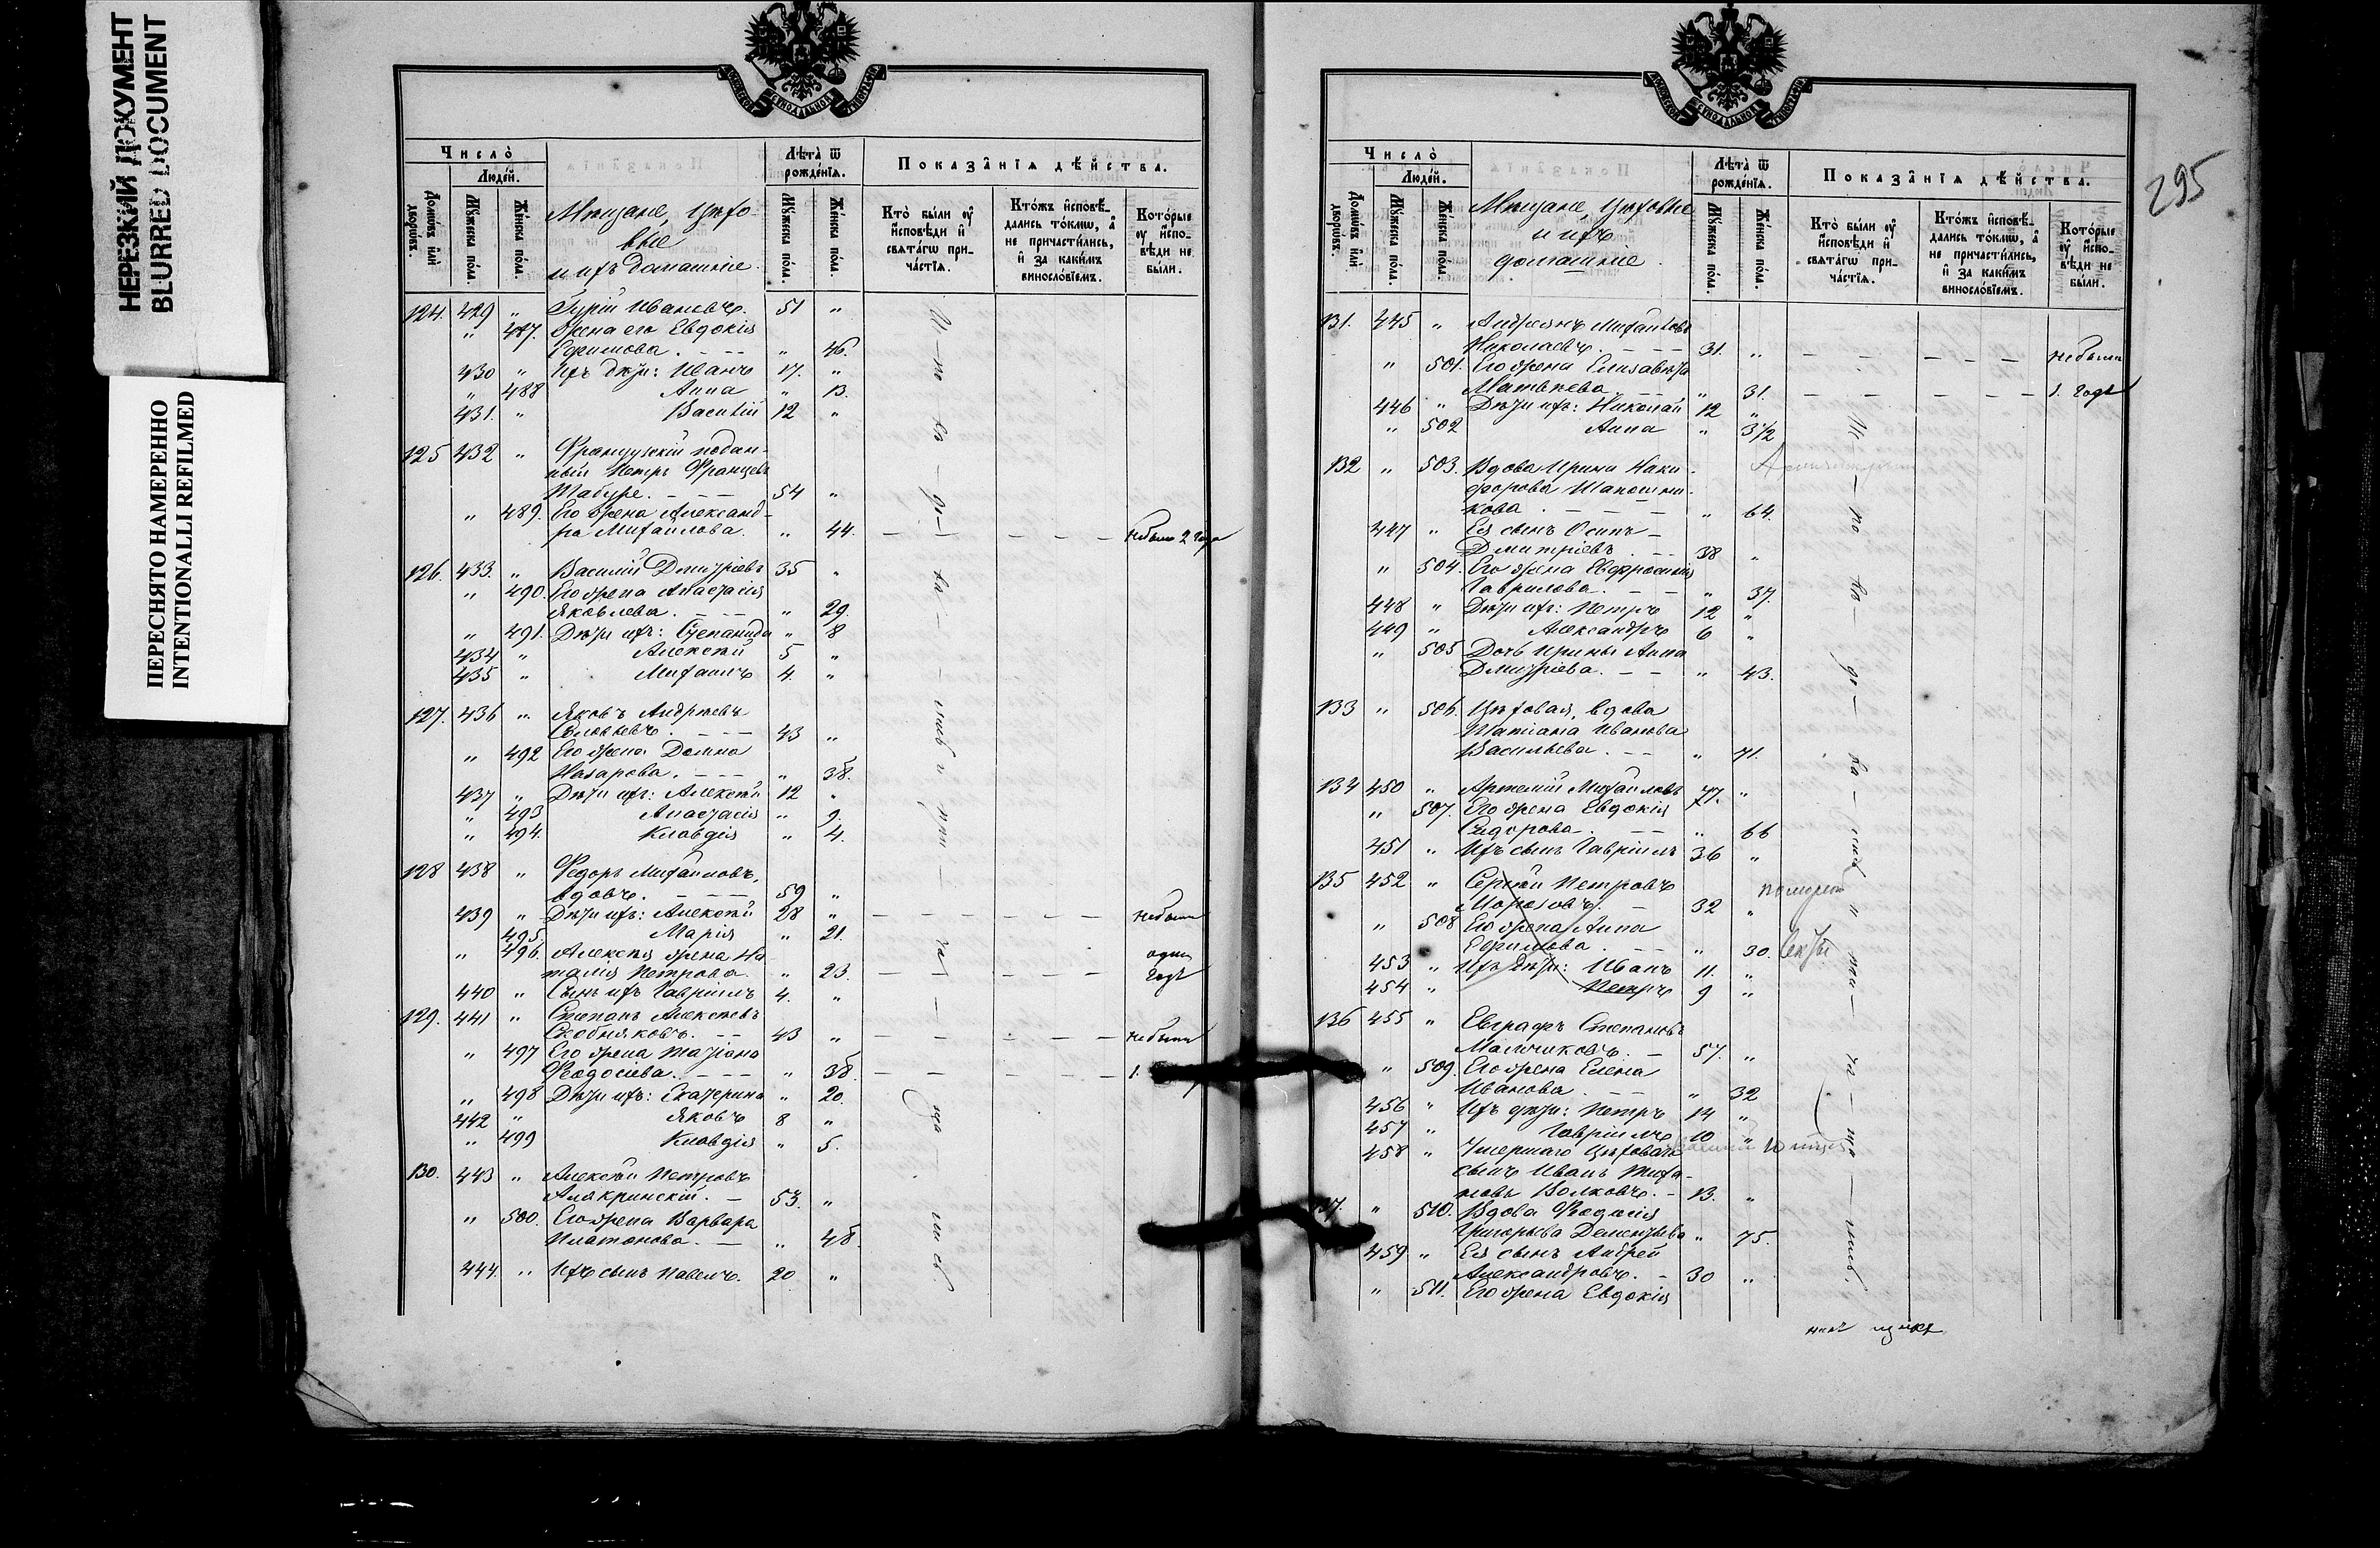 НЕРЕЗКИЙ ДОКУМЕНТ
BLURRED DOCUMENT
ПЕРЕСНЯТО НАМЕРЕННО
INTENTIONALLI REFILMED
Число̀
Людей.
Домѡвъ или дворѡвъ.
Мꙋжеска пола.
Женска пола.
Мѣщане, цехо-
вые
и ихъ домашніе.
Лѣта ѿ рожденїѧ.
Мꙋжеска пола.
Женска пола.
Показанїѧ дѣйства.
Кто были ꙋ исповѣди и свѧтагѡ причастїѧ.
Ктожъ исповѣдались токмѡ, а не причастились, и за какимъ винословїемъ.
Которые ꙋ исповѣди не были.
124. 429 " Гурій Ивановъ. 51 "
" 487. Жена его Евдокія
Ефимова. " 46.
430 " Ихъ дѣти: Иванъ 17. "
" 488 Анна " 13.
431. " Василій 12 "
125 432 " Французскій подан-
ный Петръ Францевъ
Табуре. 54 "
" 489. Его жена Александ-
ра Михайлова. " 44. не была 2 года
126. 433. " Василій Дмитріевъ 35 "
" 490. Его жена Анастасія
Яковлева. " 29.
" 491. Дѣти ихъ: Степанида " 8
434 " Алексѣй 5 "
435 " Михаилъ 4. "
127. 436 " Яковъ Андреевъ
Соловьевъ. 43 "
" 492 Его жена Домна
Назарова. " 38.
437 " Дѣти ихъ: Алексѣй 12 "
" 493 Анастасія " 9.
" 494. Клавдія " 4.
128 438 " Федоръ Михайловъ,
вдовъ. 59 "
439 " Дѣти ихъ: Алексѣй 28 " не были
495. Марія " 21.
" 496. Алексѣя жена На- одинъ
талія Петрова. " 23. годъ
440 " Сынъ ихъ Гавріилъ 4. "
129. 441 " Степанъ Алексѣевъ
Скобняковъ. 43 " не были
" 497 Его жена Татіана
Феодосіева. " 38. 1.
" 498 Дѣти ихъ: Екатерина " 20.
442 " Яковъ 8 "
" 499 Клавдія " 5.
130. 443 " Алексѣй Петровъ
Алакринскій. 53. "
" 500. Его жена Варвара
Платонова. " 48.
444. " Ихъ сынъ Павелъ. 20 "
295
Число̀
Людей.
Домѡвъ или дворѡвъ.
Мꙋжеска пола.
Женска пола.
Мѣщане, цеховые
и ихъ
домашніе.
Лѣта ѿ рожденїѧ.
Мꙋжеска пола.
Женска пола.
Показанїѧ дѣйства.
Кто были ꙋ исповѣди и свѧтагѡ причастїѧ.
Ктожъ исповѣдались токмѡ, а не причастились, и за какимъ винословїемъ.
Которые ꙋ исповѣди не были.
131. 445 " Андреянъ Михайловъ
Николаевъ. 31. " не были
" 501. Его жена Елизавета
Матвѣева " 31. 1. годъ
446 " Дѣти ихъ: Николай 12 "
" 502 Анна " 3½
132 " 503. Вдова Ирина Ники-
форова Шапошни-
кова. " 64.
447 " Ея сынъ Осипъ
Дмитріевъ. 38 "
" 504. Его жена Евфросинія
Гаврилова. " 37.
448 " Дѣти ихъ: Петръ 12 "
449 " Александръ 6 "
" 505 Дочь Ирины Анна
Дмитріева. " 43.
133 " 506. Цеховая, вдова
Татіана Иванова
Васильева. " 71.
134 450 " Артемій Михайловъ 77. "
" 507. Его жена Евдокія
Сидорова. " 66
451 " Ихъ сынъ Гавріилъ 36 "
135 452 " Сергѣй Петровъ
Морозовъ. 32 "
" 508 Его жена Анна
Ефимова. " 30.
453 " Ихъ дѣти: Иванъ 11. "
454 " Петръ 9 "
136 455 " Евграфъ Степановъ
Мальчиковъ. 57. "
" 509. Его жена Елена
Иванова. " 32
456 " Ихъ дѣти: Петръ 14 "
457 " Гавріилъ 10 "
458 " Умершаго цеховаго
сынъ Иванъ Миха-
иловъ Волковъ. 13. "
" 510. Вдова Феодосія
Григорьева Дементьева " 75.
459 " Ея сынъ Андрей
Александровъ. 30 "
" 511. Его жена Евдокія